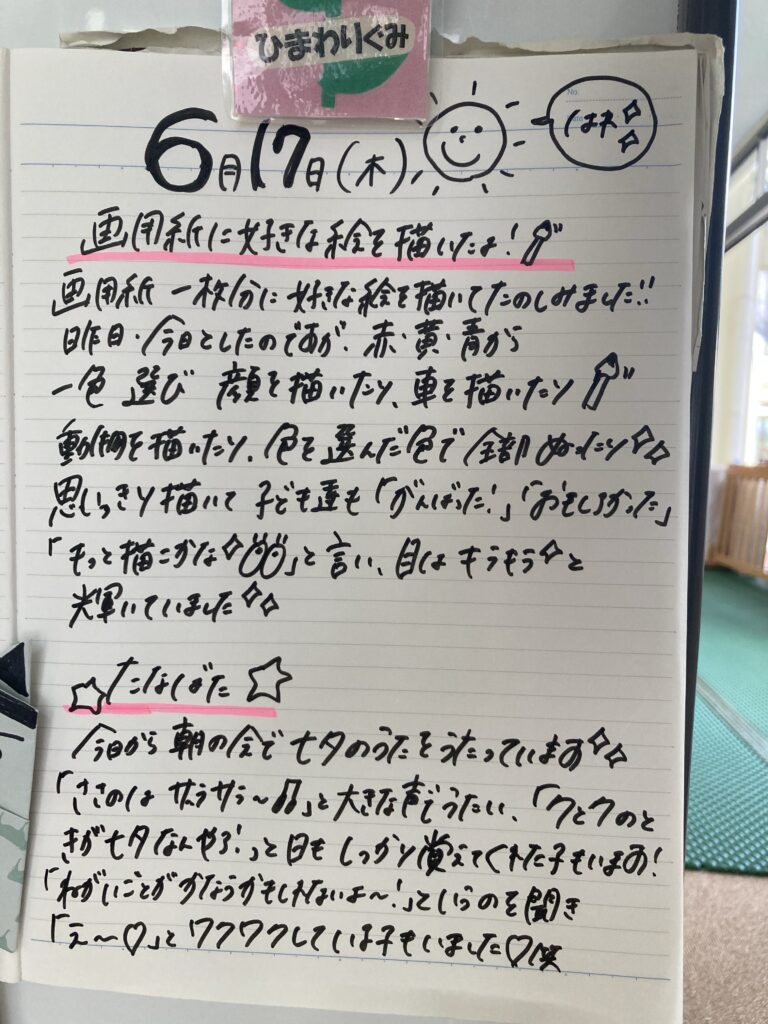 ひまわりぐみ
6月17日(木)
はれ
画用紙に好きな絵を描いたよ!
画用紙一枚分に好きな絵を描いてたのしみました!!
昨日・今日としたのですが、赤・黄・青から
一色選び 顔を描いたり、車を描いたり
動物を描いたり、色を選んだ色で全部ぬったり
思いっきり描いて子ども達も「がんばった!」「おもしろかった」
「もっと描こかな」と言い、目はキラキラと
輝いていました
☆たなばた☆
今日から朝の会で七夕のうたをうたっています
「ささのはサラサラ〜♫」と大きな声でうたい、「7と7のと
きが七夕なんやろ!」と日もしっかり覚えてくれた子もいます!
「ねがいごとがかなうかもしれないよ〜!」というのを聞き
「え〜♡」とワクワクしている子もいました♡笑